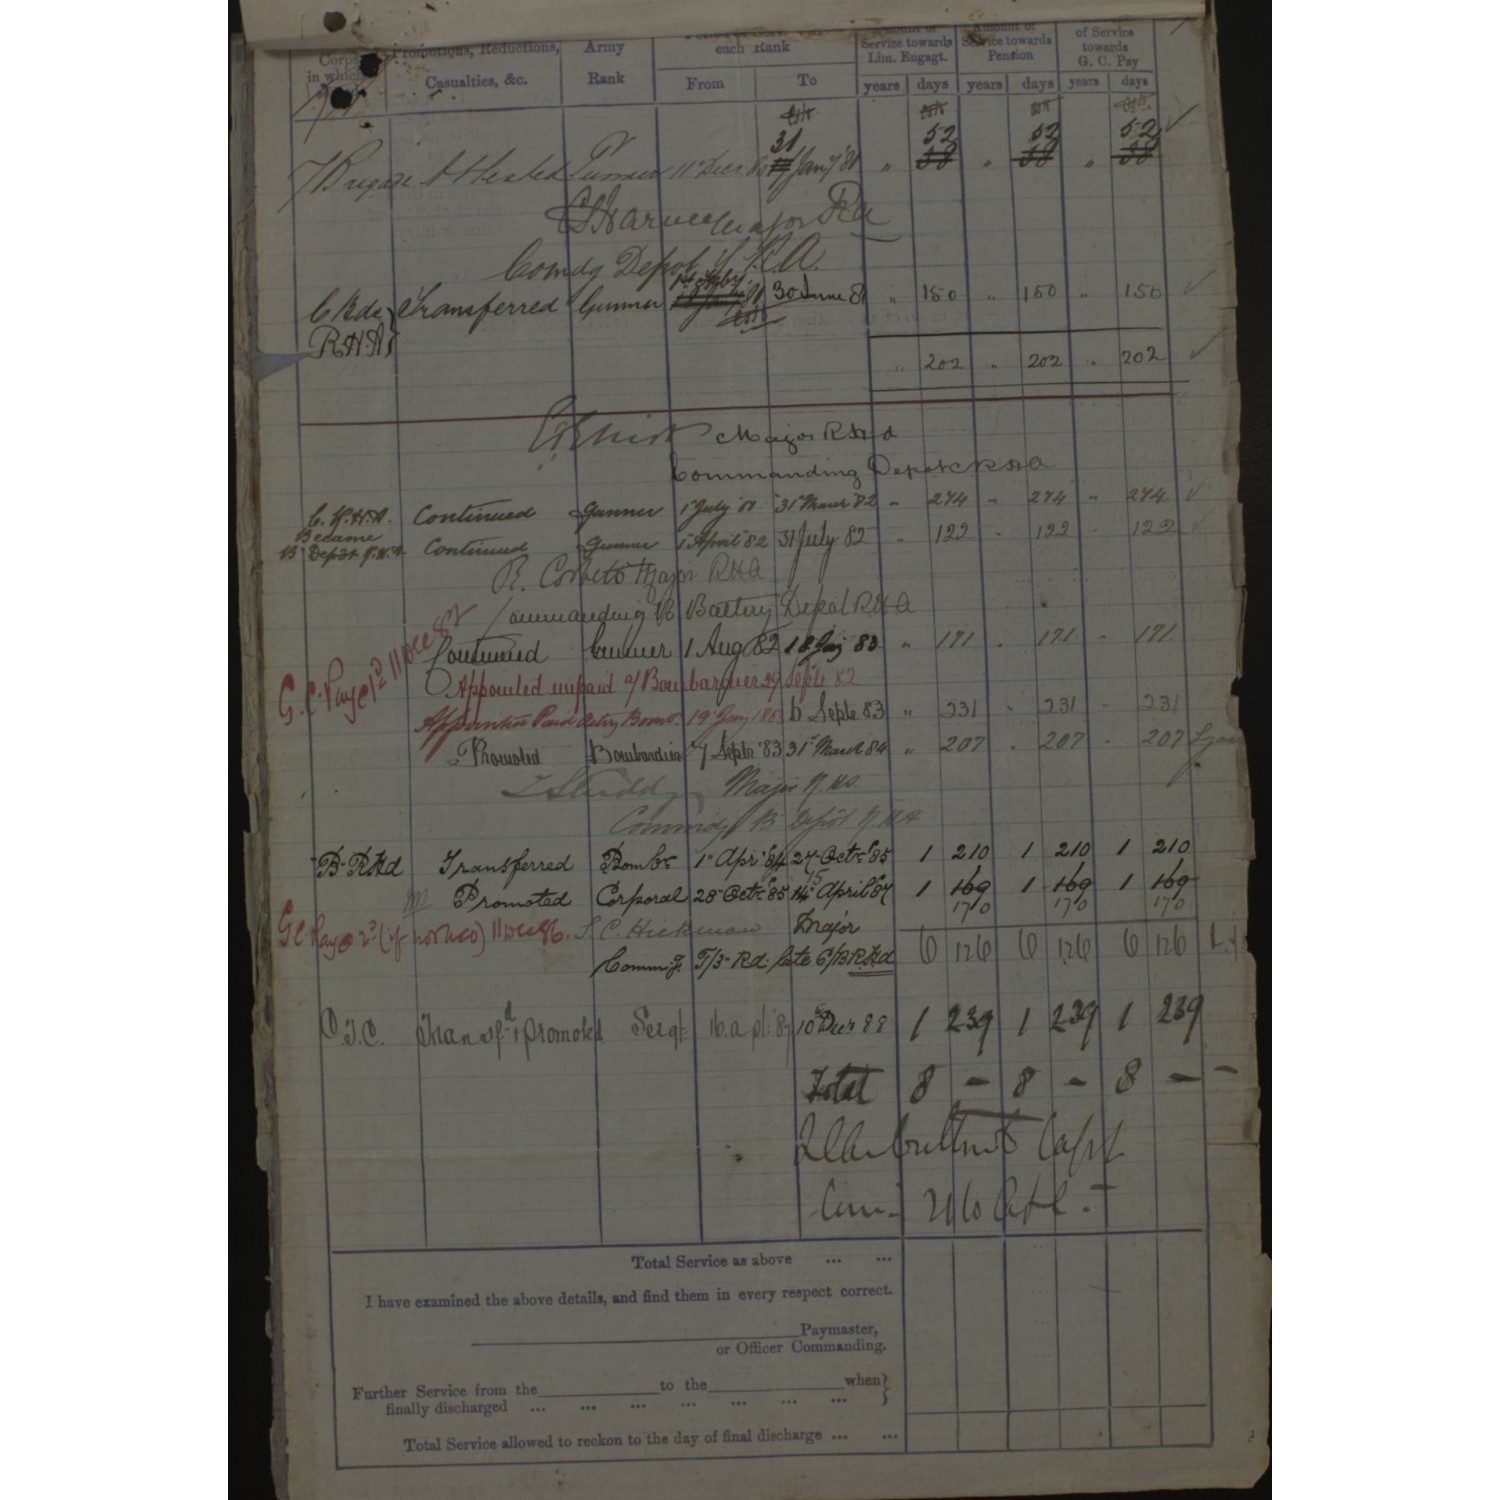 Corps in which Promotions, Reductions, Casualties, &c. Army Rank each Rank From To Amount of Service towards Lim. Engagt. years days Amount of Service towards Pension years days of Service towards G. C. Pay years days
31 52 52 52
7 Brigade Attested Gunner 11 Decr. 80 Jany '81 " 58 " 58 " 58
Major RA
Comdg Depot R.A.
C Bde R.H.A Transferred Gunner 81 30 June 81 " 150 " 150 " 150
" 202 " 202 " 202
Major RHA
Commanding Depot RHA
C. R.H.A. Continued Gunner 1 July 81 31 March 82 " 274 " 274 " 274
Became B Depot R.H.A. Continued Gunner 1 April 82 31 July 82 " 122 " 122 " 122
R. Corbett Major RHA
Commanding B Battery Depot RHA
G.C. Pay @ 1d 11 Dec 82
Continued Gunner 1 Aug 82 18 Jany 83 " 171 " 171 " 171
Appointed unpaid a/ Bombardier 29 Septr 82
Appointed Paid Actg Bombr. 19 Jany 1883 6 Septr 83 " 231 " 231 " 231
Promoted Bombardier 7 Septr '83 31st March 84 " 207 " 207 " 207
Major R.H.A.
Commdg B Depôt R.H.A
B- RHA Transferred Bombr 1st Apr '84 27 Octr 85 1 210 1 210 1 210
Promoted Corporal 28 Octr 85 14 15 April 87 1 169 1 169 1 169
170 170 170
G.C. Pay @ 2d (if not nco) 11 Dec 86. S. C. Hickman Major 6 126 6 126 6 126
Commdg. T/3- Rd: late C/B RHA
Transfd & promoted Sergt: 16 apl: 87 10 Decr 88 1 239 1 239 1 239
Total 8 - 8 - 8 -
Capt
Total Service as above ... ...
I have examined the above details, and find them in every respect correct.
Paymaster,
or Officer Commanding.
Further Service from the to the when
finally discharged ... ... ... ... ... ... ...
Total Service allowed to reckon to the day of final discharge ... ...